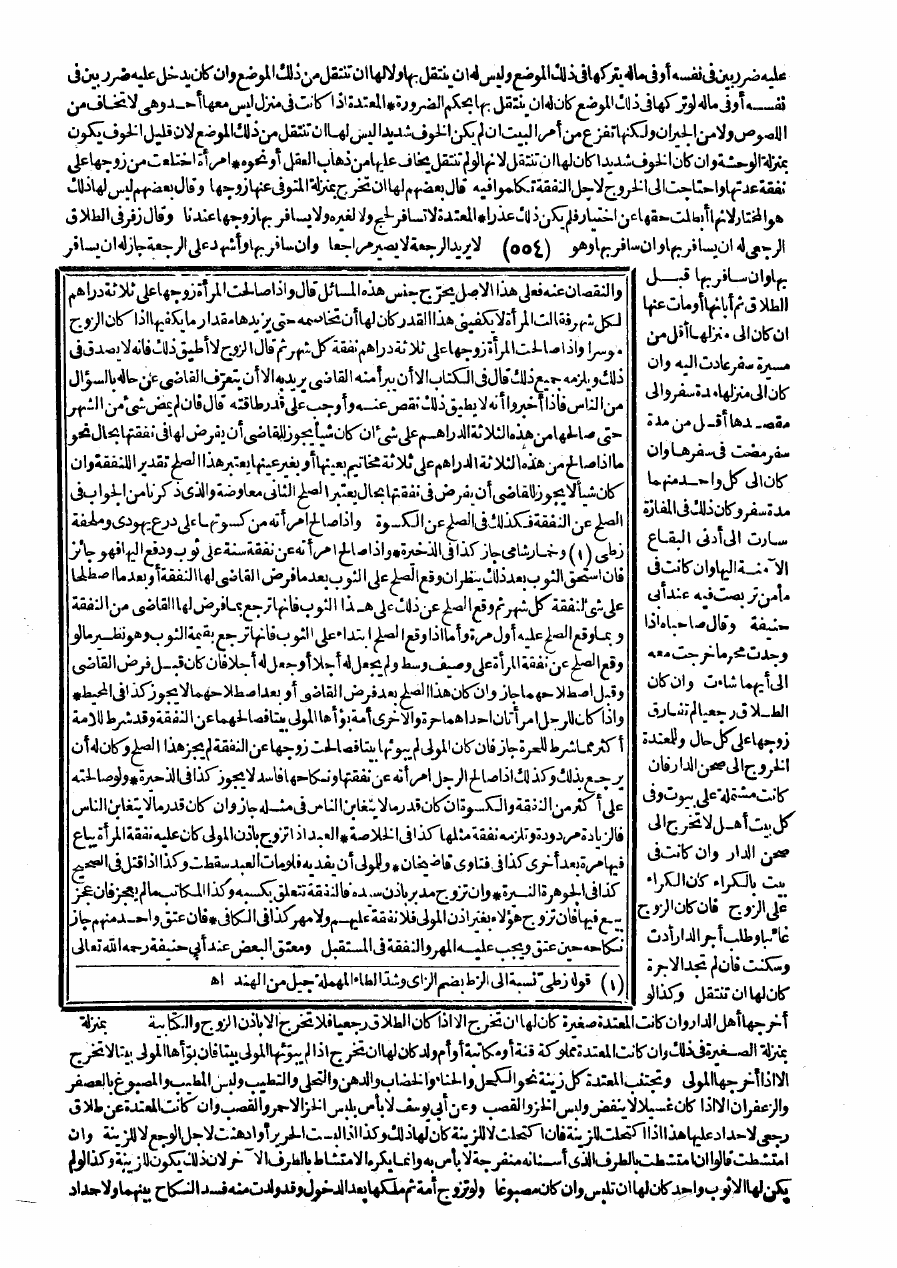 عليه ضرر بين في نفسه أو في ماله يتركها في ذلك الموضع وليس له ان ينتقل بها ولا لها ان تنتقل من ذلك الموضع وان كان يدخل عليه ضرر بين في
نفسه أو في ماله لو تركها في ذلك الموضع كان له ان ينتقل بها بحكم الضرورة * المعتدة اذا كانت في منزل ليس معها أحد وهي لا تخاف من
اللصوص ولا من الجيران ولكنها تفزع من أمر البيت ان لم يكن الخوف شديدا ليس لها ان تنتقل من ذلك الموضع لان قليل الخوف يكون
بمنزلة الوحشة وان كان الخوف شديدا كان لها ان تنتقل لانها لو لم تنتقل يخاف عليها من ذهاب العقل أو نحوه * امرأة اختلعت من زوجها على
نفقة عدتها واحتاجت الى الخروج لاجل النفقة تكلموا فيه قال بعضهم لها ان تخرج بمنزلة المتوفى عنها زوجها وقال بعضهم ليس لها ذلك
هو المختار لانها أبطلت حقها عن اختيار فلم يكن ذلك عذرا * المعتدة لا تسافر لحج ولا لغيره ولا يسافر بها زوجها عندنا وقال زفر في الطلاق
الرجعي له ان يسافر بها وان سافر بها وهو (٥٥٤) لا يريد الرجعة لا يصير مراجعا وان سافر بها وأشهد على الرجعة جاز له ان يسافر
بها وان سافر بها قبل
الطلاق ثم أبانها أو مات عنها
ان كان الى منزلها أقل من
مسيرة سفر عادت اليه وان
كان الى منزلها مدة سفر والى
مقصدها أقل من مدة
سفر مضت في سفرها وان
كان الى كل واحد منهما
مدة سفر وكان ذلك في المفازة
سارت الى أدنى البقاع
الآمنة اليها وان كانت في
مأمن تربصت فيه عند أبي
حنيفة وقال صاحباه اذا
وجدت محرما خرجت معه
الى أيهما شاءت وان كان
الطلاق رجعيا لم تفارق
زوجها على كل حال وللمعتدة
الخروج الى صحن الدار فان
كانت مشتملة على بيوت وفي
كل بيت أهل لا تخرج الى
صحن الدار وان كانت في
بيت بالكراء كان الكراء
على الزوج فان كان الزوج
غائبا وطلب أجر الدار أدت
وسكنت فان لم تجد الاجرة
كان لها ان تنتقل وكذا لو
والنقصان عنه فعلى هذا الاصل يخرج جنس هذه المسائل قال واذا صالحت المرأة زوجها على ثلاثة دراهم
لكل شهر فقالت المرأة لا يكفيني هذا القدر كان لها أن تخاصمه حتى يزيدها مقدار ما يكفيها اذا كان الزوج
موسرا واذا صالحت المرأة زوجها على ثلاثة دراهم نفقة كل شهر ثم قال الزوج لا أطيق ذلك فانه لا يصدق في
ذلك ويلزمه جميع ذلك قال في الكتاب الا أن يبرأ منه القاضي يريد به الا أن يتعرف القاضي عن حاله بالسؤال
من الناس فاذا أخبروا أنه لا يطيق ذلك نقص عنه وأوجب على قدر طاقته قال فان لم يمض شيء من الشهر
حتى صالحها من هذه الثلاثة الدراهم على شيء ان كان شيأ يجوز للقاضي أن يفرض لها في نفقتها بحال نحو
ما اذا صالح من هذه الثلاثة الدراهم على ثلاثة مخاتيم بعينها أو بغير عينها يعتبر هذا الصلح تقدير اللنفقة وان
كان شيأ لا يجوز للقاضي أن يفرض في نفقتها بحال يعتبر الصلح الثاني معاوضة والذي ذكرنا من الجواب في
الصلح عن النفقة فكذلك في الصلح عن الكسوة واذا صالح امرأته من كسوتها على درع يهودي وملحفة
زطي (١) وخمار شامي جاز كذا في الذخيرة * واذا صالح امرأته عن نفقة سنة على ثوب ودفع اليها فهو جائز
فان استحق الثوب بعد ذلك ينظر ان وقع الصلح على الثوب بعد ما فرض القاضي لها النفقة أو بعد ما اصطلحا
على شيء لنفقة كل شهر ثم وقع الصلح عن ذلك على هذا الثوب فانها ترجع بما فرض لها القاضي من النفقة
وبما وقع الصلح عليه أول مرة وأما اذا وقع الصلح ابتداء على الثوب فانها ترجع بقيمة الثوب وهو نظير ما لو
وقع الصلح عن نفقة المرأة على وصيف وسط ولم يجعل له أجلا أو جعل له أجلا فان كان قبل فرض القاضي
وقبل اصطلاحهما جاز وان كان هذا الصلح بعد فرض القاضي أو بعد اصطلاحهما لا يجوز كذا في المحيط *
واذا كان للرجل امرأتان احداهما حرة والاخرى أمة بوأها المولى بيتا فصالحهما عن النفقة وقد شرط للامة
أكثر مما شرط للحرة جاز فان كان المولى لم يبوئها بيتا فصالحت زوجها عن النفقة لم يجز هذا الصلح وكان له أن
يرجع بذلك وكذلك اذا صالح الرجل امرأته عن نفقتها ونكاحها فاسد لا يجوز كذا في الذخيرة * ولو صالحته
على أكثر من النفقة والكسوة ان كان قدر ما لا يتغابن الناس في مثله جاز وان كان قدر ما لا يتغابن الناس
فالزيادة مردودة وتلزمه نفقة مثلها كذا في الخلاصة * العبد اذا تزوج باذن المولى كان عليه نفقة المرأة يباع
فيها مرة بعد أخرى كذا في فتاوى قاضيخان * وللمولى أن يفديه فلو مات العبد سقطت وكذا اذا قتل في الصحيح
كذا في الجوهرة النيرة * وان تزوج مدبر باذن سيده فالنفقة تتعلق بكسبه وكذا المكاتب ما لم يعجز فان عجز
بيع فيها فان تزوج هؤلاء بغير اذن المولى فلا نفقة عليهم ولا مهر كذا في الكافي * فان عتق واحد منهم جاز
نكاحه حين عتق ويجب عليه المهر والنفقة في المستقبل ومعتق البعض عند أبي حنيفة رحمه الله تعالى
(١) قوله زطي نسبة الى الزط بضم الزاي وشد الطاء المهملة جيل من الهند اه
أخرجها أهل الدار وان كانت المعتدة صغيرة كان لها ان تخرج الا اذا كان الطلاق رجعيا فلا تخرج الا باذن الزوج والكتابية بمنزلة
بمنزلة الصغيرة في ذلك وان كانت المعتدة مملوكة قنة أو مكاتبة أو أم ولد كان لها ان تخرج اذا لم يبوئها المولى بيتا فان بوأها المولى بيتا لا تخرج
الا اذا أخرجها المولى وتجتنب المعتدة كل زينة نحو الكحل والحناء والخضاب والدهن والتحلي والتطيب ولبس المطيب والمصبوغ بالعصفر
والزعفران الا اذا كان غسيلا لا ينفض ولبس الخز والقصب وعن أبي يوسف لا بأس بلبس الخز الاحمر والقصب وان كانت المعتدة عن طلاق
رجعي لا حداد عليها هذا اذا اكتحلت للزينة فان اكتحلت لا للزينة كان لها ذلك وكذا اذا لبست الحرير أو ادهنت لاجل الوجع لا للزينة وان
امتشطت قالوا ان امتشطت بالطرف الذي أسنانه منفرجة لا بأس به وانما يكره الامتشاط بالطرف الآخر لان ذلك يكون للزينة وكذا لو لم
يكن لها الا ثوب واحد كان لها ان تلبس وان كان مصبوغا ولو تزوج أمة ثم ملكها بعد الدخول وقد ولدت منه فسد النكاح بينهما ولا حداد